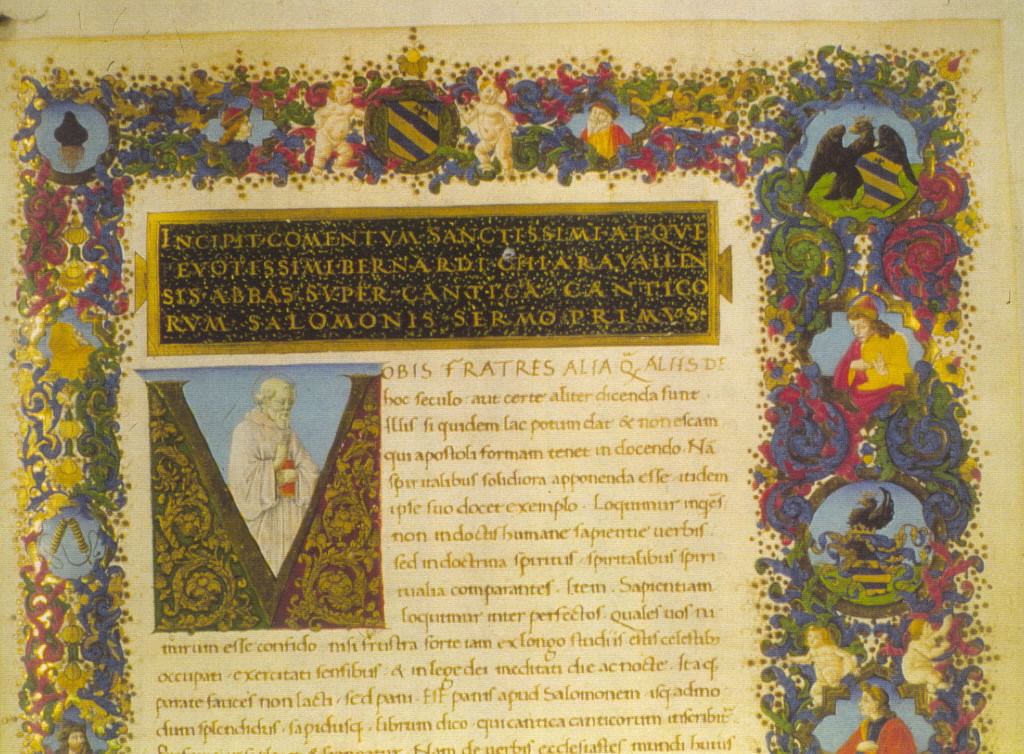 INCIPIT·COMENTVM·SANCTISSIMI·ATQVE
EVOTISSIMI·BERNARDI·CHIARAVALLEN
SIS·ABBAS·SVPER·CANTICA·CANTICO
RVM·SALOMONIS·SERMO·PRIMVS·
VOBIS FRATRES ALIA Q̃ ALIIS DE
hoc seculo · aut certe aliter dicenda sunt ·
Illis si quidem lac potum dat & non escam
qui apostoli formam tenet in docendo · Nã
spiritalibus solidiora apponenda esse · itidem
ipse suo docet exemplo · Loquimur inqẽs
non in doctis humane sapientie uerbis ·
sed in doctrina spiritus · spiritalibus spiri
tualia comparantes · Item · Sapientiam
loquimur inter perfectos · quales uos ni
mirum esse confido · nisi frustra forte iam ex longo studiis estis celestibꝫ
occupati · exercitati sensibus · & in lege dei meditati die ac nocte · Itaqꝫ
parate fauces non lacti · sed pani · Est panis apud Salomonem · isqꝫ admo
dum splendidus · sapidusqꝫ · librum dico · qui cantica canticorum inscribit᷑
Nam de uerbis ecclesiastes mundi huius